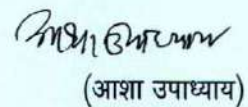 आशा उपाध्याय
(आशा उपाध्याय)